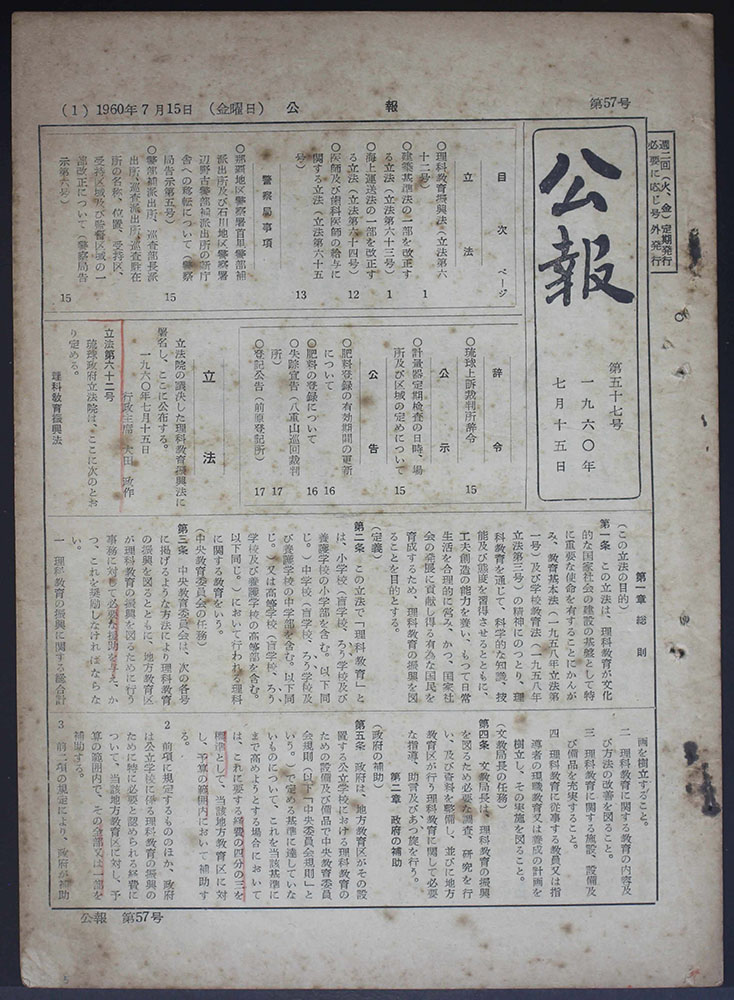 (1) 1960年7月15日 (金曜日) 公報 第57号
週二回(火、金)定期発行
必要に応じ号外発行
公報
第五十七号
一九六〇年
七月十五日
目次 ページ
立法
○理科教育振興法(立法第六
十二号) 1
○建築基準法の一部を改正す
る立法(立法第六十三号) 1
○海上運送法の一部を改正す
る立法(立法第六十四号) 12
○医師及び歯科医師の給与に
関する立法(立法第六十五
号) 13
警察局事項
○那覇地区警察署首里警部補
派出所及び石川地区警察署
辺野古警部補派出所の新庁
舎への移転について(警察
局告示第五号) 15
○警部補派出所、巡査部長派
出所、巡査派出所、巡査駐在
所の名称、位置、受持区、
受持区域及び監督区域の一
部改正について(警察局告
示第六号) 15
辞令
○琉球上訴裁判所辞令 15
公示
○計量器定期検査の日時、場
所及び区域の定めについて 15
公告
○肥料登録の有効期間の更新
について 16
○肥料の登録について 16
○失踪宣告(八重山巡回裁判
所) 17
○登記公告(前原登記所) 17
立法
立法院の議決した理科教育振興法に
署名し、ここに公布する。
一九六〇年七月十五日
行政主席 大田政作
立法第六十二号
琉球政府立法院は、ここに次のとお
り定める。
理科教育振興法
第一章 総則
(この立法の目的)
第一条 この立法は、理科教育が文化
的な国家社会の建設の基盤として特
に重要な使命を有することにかんが
み、教育基本法(一九五八年立法第
一号)及び学校教育法(一九五八年
立法第三号)の精神にのつとり、理
科教育を通じて、科学的な知識、技
能及び態度を習得させるとともに、
工夫創造の能力を養い、もつて日常
生活を合理的に営み、かつ、国家社
会の発展に貢献し得る有為な国民を
育成するため、理科教育の振興を図
ることを目的とする。
(定義)
第二条 この立法で「理科教育」と
は、小学校(盲学校、ろう学校及び
養護学校の小学部を含む。以下同
じ。)中学校(盲学校、ろう学校及
び養護学校の中学部を含む。以下同
じ。)又は高等学校(盲学校、ろう
学校及び養護学校の高等部を含む。
以下同じ。)において行われる理科
に関する教育をいう。
(中央教育委員会の任務)
第三条 中央教育委員会は、次の各号
に掲げるような方法により理科教育
の振興を図るとともに、地方教育区
が理科教育の振興を図るために行う
事務に対して必要な援助を与え、か
つ、これを奨励しなければならな
い。
一 理科教育の振興に関する総合計
画を樹立すること。
二 理科教育に関する教育の内容及
び方法の改善を図ること。
三 理科教育に関する施設、設備及
び備品を充実すること。
四 理科教育に従事する教員又は指
導者の現職教育又は養成の計画を
樹立し、その実施を図ること。
(文教局長の任務)
第四条 文教局長は、理科教育の振興
を図るため必要な調査、研究を行
い、及び資料を整備し、並びに地方
教育区が行う理科教育に関して必要
な指導、助言及びあつ旋を行う。
第二章 政府の補助
(政府の補助)
第五条 政府は、地方教育区がその設
置する公立学校における理科教育の
ための設備及び備品で中央教育委員
会規則(以下「中央委員会規則」と
いう。)で定める基準に達していな
いものについて、これを当該基準に
まで高めようとする場合において
は、これに要する経費の四分の三を
標準として、当該地方教育区に対
し、予算の範囲内において補助す
る。
2 前項に規定するもののほか、政府
は公立学校に係る理科教育の振興の
ために特に必要と認められる経費に
ついて、当該地方教育区に対し、予
算の範囲内で、その全部又は一部を
補助する。
3 前二項の規定により、政府が補助
公報 第57号